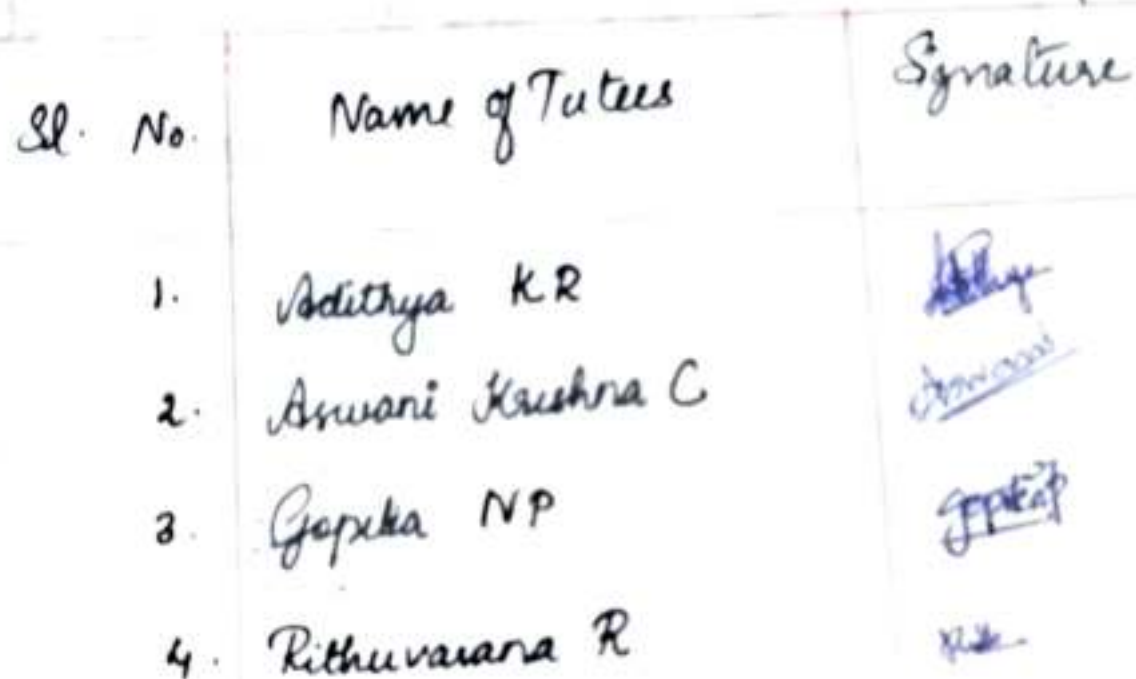 Sl. No. Name of Tutees Signature
1. Adithya KR Adithya
2. Aswani Krishna C Aswani
3. Gopika NP Gopika
4. Rithuvarana R